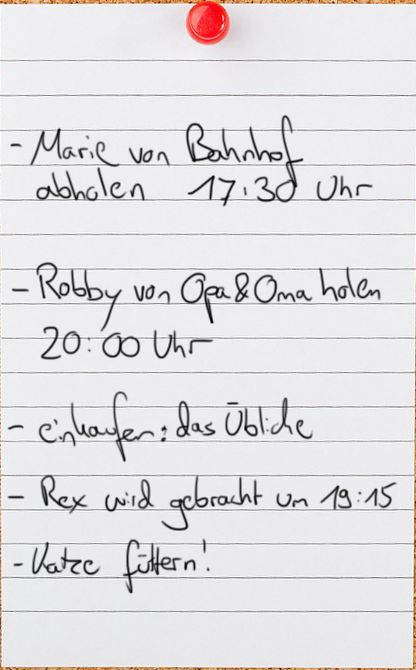 - Marie von Bahnhof
abholen 17:30 Uhr
- Robby von Opa & Oma holen
20:00 Uhr
- einkaufen: das Übliche
- Rex wird gebracht um 19:15
- Katze füttern!